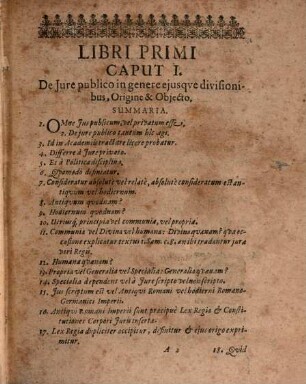 LIBRI PRIMI
CAPUT I.
De Jure publico in genere ejusqve divisioni-
bus, Origine & Objecto.
SUMMARIA.
1. OMne Jus publicum, vel privatum esse.
2. De jure publico tantum hic agi.
3. Id in Academiis tractare licere probatur.
4. Differre à Jure privato.
5. Et à Politica disciplina.
6. Quomodo definiatur.
7. Consideratur absolutè vel relatè, absolutè consideratum est an-
tiquum vel hodiernum.
8. Antiquum quodnam?
9. Hodiernum quodnam?
10. Utriusq; principia vel communia, vel propria.
11. Communia vel Divina vel humana: Divina quænam? qua oc-
casione explicatur textus 1. Sam. c. 8. an ibi tradantur jura
verè Regii.
12. Humana quænam?
13. Propria vel Generalia vel Specialia: Generalia quænam?
14. Specialia dependent vel à Jure scripto vel non scripto.
15. Jus scriptum est vel Antiqvi Romani vel hodierni Romano-
Germanici Imperii.
16. Antiqvi Romani Imperii sunt præcipuè Lex Regia & Consti-
tutiones Corpori Juris insertæ.
17. Lex Regia dupliciter accipitur, definitur & ejus origo expri-
mitur.
A 2 18. Qvid